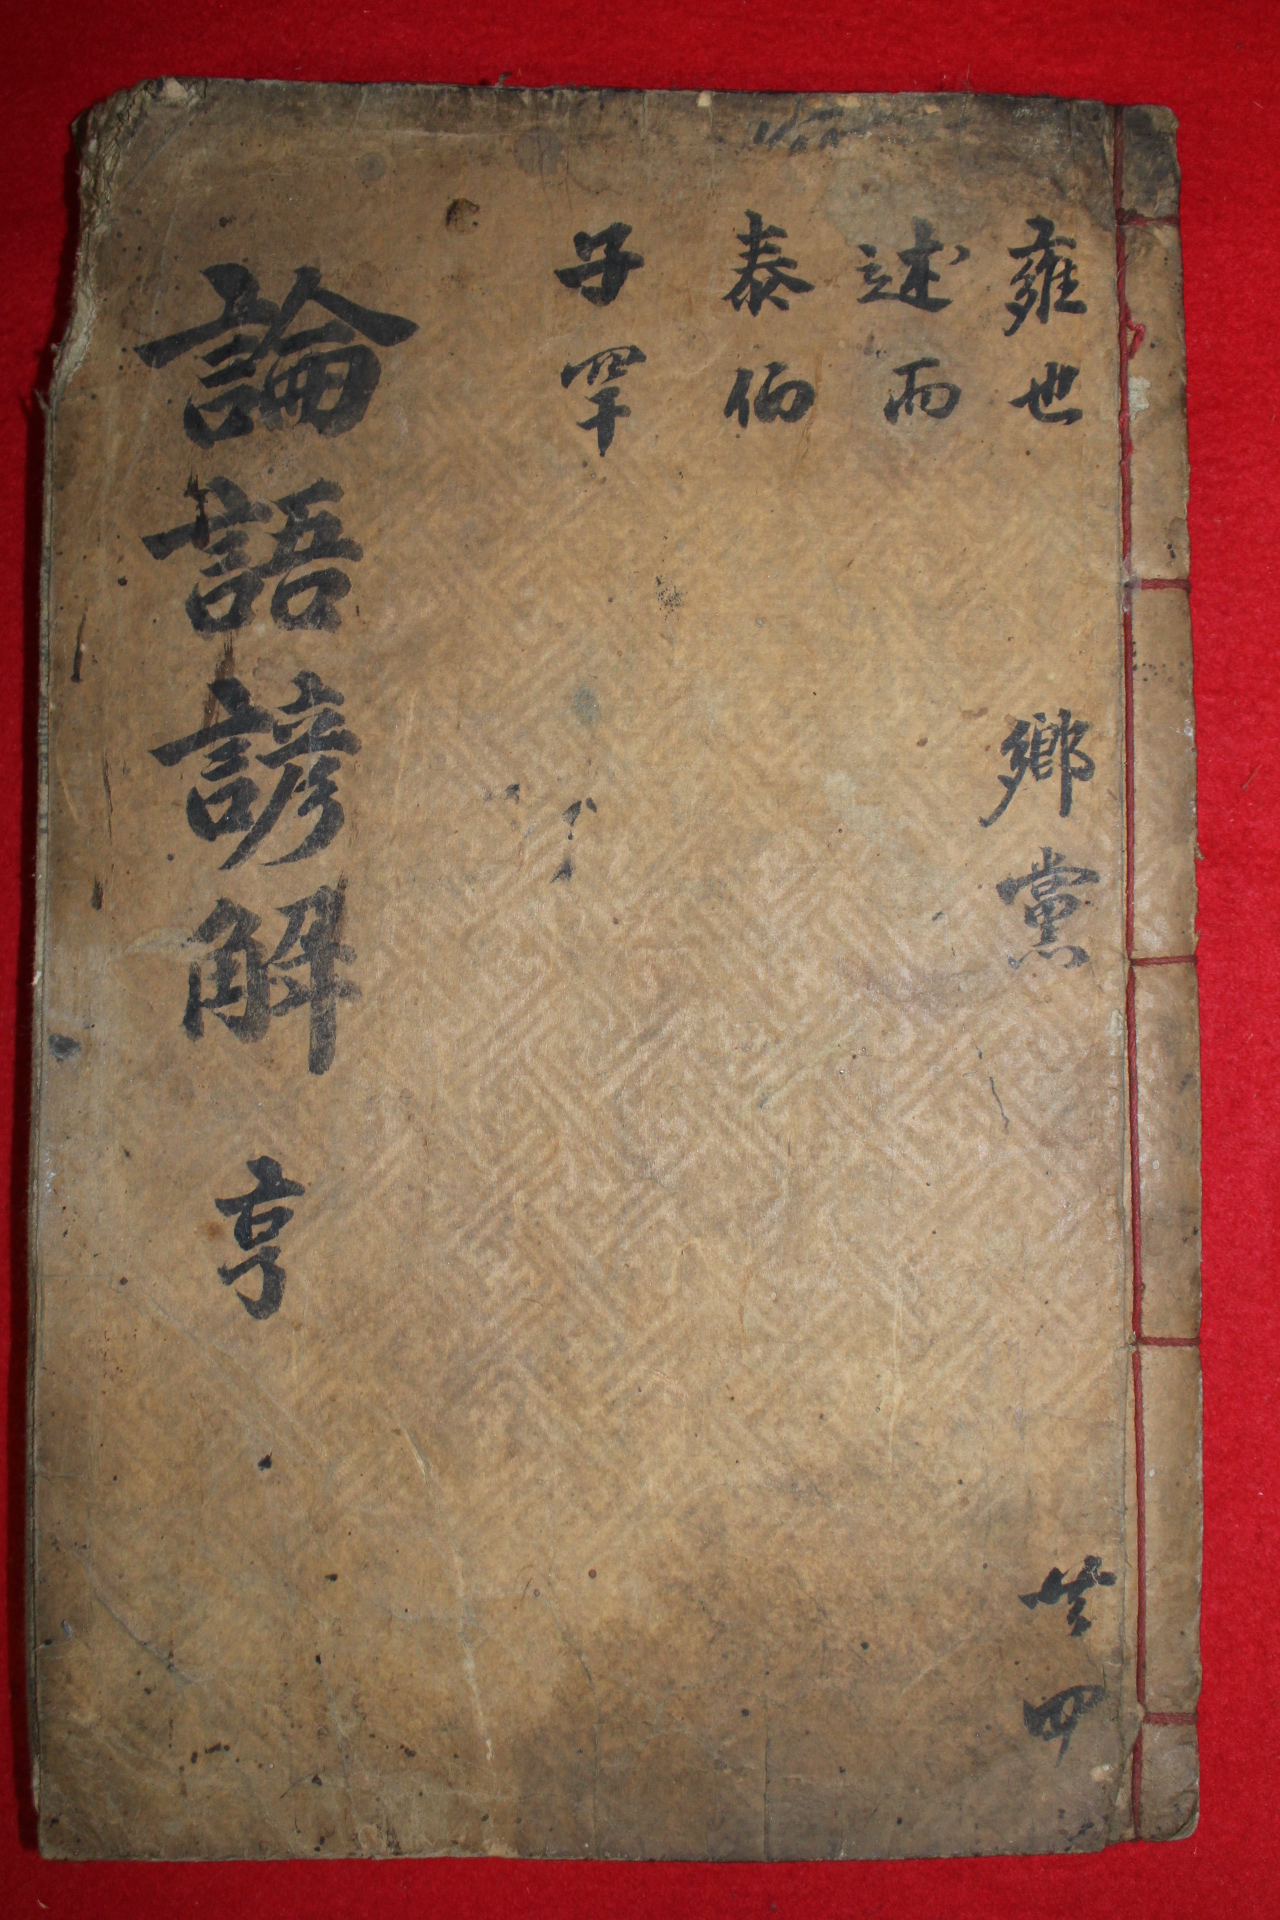 雍也
述而
泰伯
子罕
鄉黨
共四
論語諺解 亨